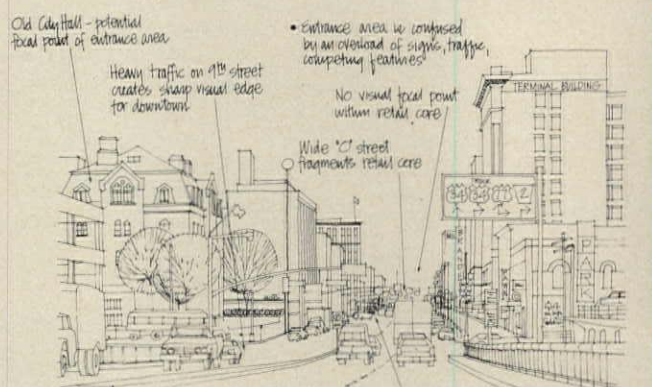 Old City Hall - potential
focal point of entrance area
Heavy traffic on 9th street
creates sharp visual edge
for downtown
• Entrance area is confused
by an overload of signs, traffic,
competing features
No visual focal point
within retail core
Wide "O" street
fragments retail core
TERMINAL BUILDING
34 34 77 2
PARK